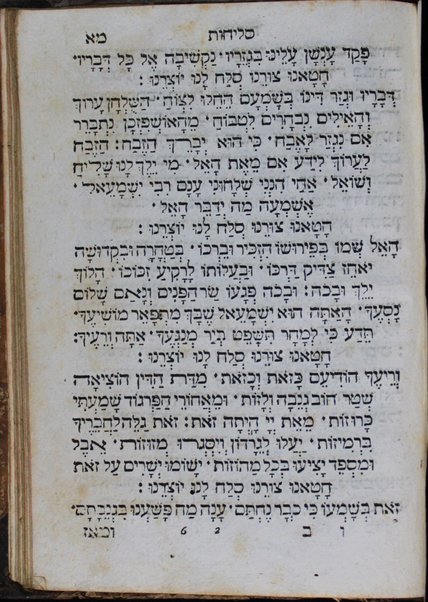 סליחות מא
פָּקַד עָנְשָׁן עָלֵינוּ בִּגְזֵרָיו · נַקְשִׁיבָה אֶל כָּל דְּבָרָיו ·
חָטָאנוּ צוּרֵנוּ סְלַח לָנוּ יוֹצְרֵנוּ :
דְּבָרָיו וּגְזַר דִּינוֹ בְּשָׁמְעָם הֵחֵלּוּ לִצְוֹחַ · הַשֻּׁלְחָן עָרוּךְ
וְהָאֵילִים נִבְחָרִים לִטְבּוֹחַ · מֵהָאוּשְׁפִּזְכָן נִתְבָּרֵר
אִם נִגְזַר לֵאָבַח · כִּי הוּא יְבָרֵךְ הַזֶּבַח : הַזֶּבַח
לַעֲרוֹךְ לֵידַע אִם מֵאֵת הָאֵל · מִי יֵלֶךְ לָנוּ שָׁלִיחַ
וְשׁוֹאֵל · אֲחִי הִנְנִי שְׁלָחוּנִי עָנָם רַבִּי יִשְׁמָעֵאל ·
אֶשְׁמְעָה מַה יְדַבֵּר הָאֵל ·
חָטָאנוּ צוּרֵנוּ סְלַח לָנוּ יוֹצְרֵנוּ :
הָאֵל שְׁמוֹ בְּפֵירוּשׁוֹ הִזְכִּיר וּבֵרְכוֹ · בְּטָהֳרָה וּבִקְדוּשָׁה
יֹאחֵז צַדִּיק דַּרְכּוֹ · וּבַעֲלוֹתוֹ לָרָקִיעַ זַכּוֹכוֹ · הָלוֹךְ
יֵלֵךְ וּבָכֹה : וּבָכֹה פְּגָעוֹ שַׂר הַפָּנִים וְנָאַם שָׁלוֹם
נָסְעֶךָ · הַאַתָּה הוּא יִשְׁמָעֵאל שֶׁבְּךָ מִתְפָּאֵר מוֹשִׁיעֶךָ ·
תֵּדַע כִּי לְמָחָר תִּשָּׁפֵט נִיָּר מִנִּגְעֶךָ · אַתָּה וְרֵיעֶיךָ :
חָטָאנוּ צוּרֵנוּ סְלַח לָנוּ יוֹצְרֵנוּ :
וְרֵיעֶיךָ הוֹדִיעֵם כָּזֹאת וְכָזֹאת · מִדַּת הַדִּין הוֹצִיאָה
שְׁטַר חוֹב גְּנֵבָה וְלָזוּת · וּמֵאֲחוֹרֵי הַפַּרְגּוֹד שָׁמַעְתִּי
כָּרוּזוֹת · מֵאֵת יְיָ הָיְתָה זֹאת : זֹאת גַּלֵּה לַחֲבֵרֶיךָ
בִּרְמִיזוֹת · יַעֲלוּ לַגַּרְדּוֹן וְיִסְּגְרוּ מְזוּזוֹת · אֵבֶל
וּמִסְפֵּד יַצִּיעוּ בְּכָל מַחוֹזוֹת · יִשּׁוֹמוּ יְשָׁרִים עַל זֹאת
חָטָאנוּ צוּרֵנוּ סְלַח לָנוּ יוֹצְרֵנוּ :
זֹאת בְּשָׁמְעוֹ כִּי כְבָר נֶחְתָּם · עָנָה מַה פִּשְׁעֵנוּ בִּגְנֵבָתָם
ו ב 6 2 ומאז